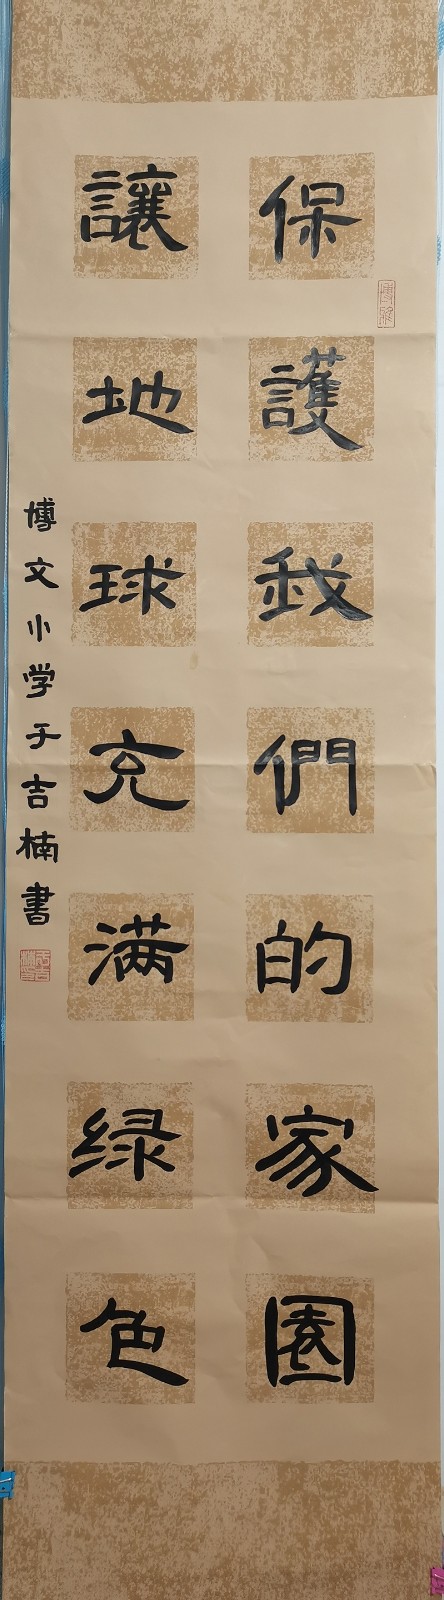 保護我們的家園
讓地球充满绿色
博文小学于吉楠書